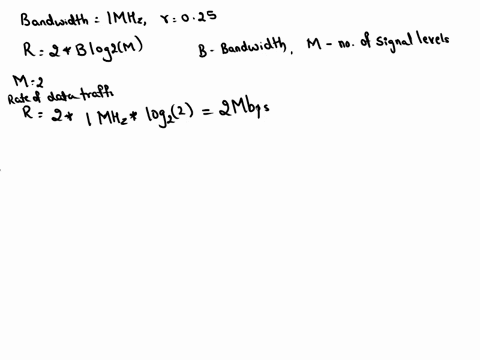 Bandwidth = 1MHz, r=0.25
R = 2 * B log2(M) B - Bandwidth, M - no. of Signal levels
M=2
Rate of data traffi
R = 2 * 1 MHz * log₂(2) = 2Mbps